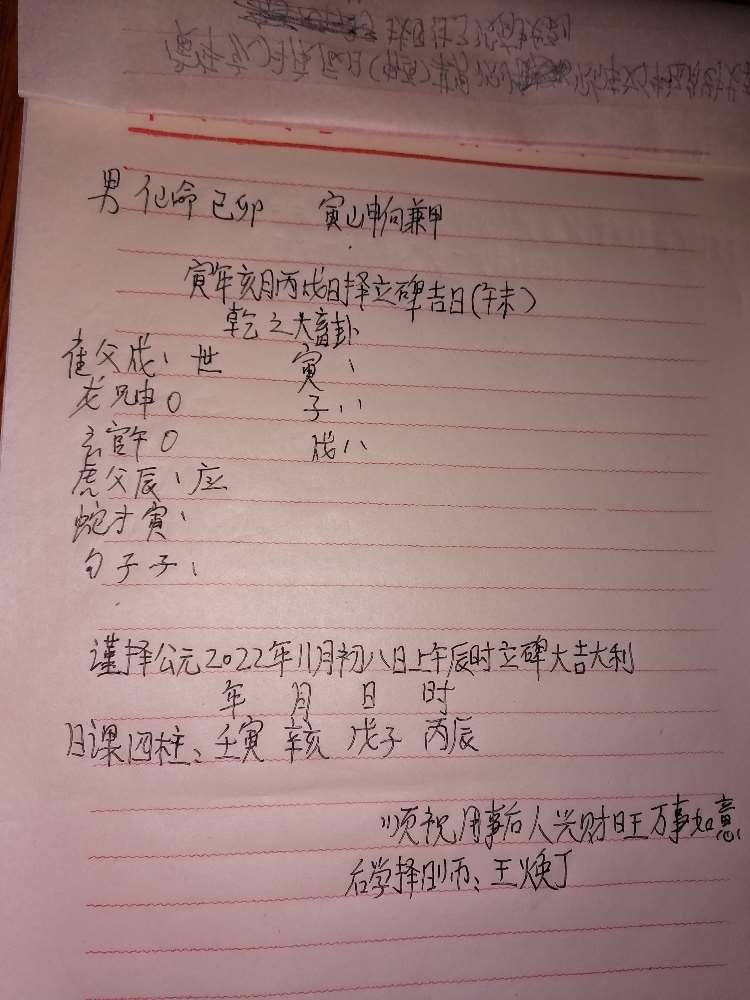 男化命己卯 寅山申向兼甲
寅年亥月丙戌日择立碑吉日(午未)
乾之大畜卦
雀父戌、世 寅、
龙兄申〇 子、、
玄官午〇 戌、、
虎父辰、应
蛇才寅、
勾子子、
谨择公元2022年11月初八日上午辰时立碑大吉大利
年 月 日 时
日课四柱：壬寅 辛亥 戊子 丙辰
顺祝用事后人兴财旺万事如意
后学择刚师：王焕丁